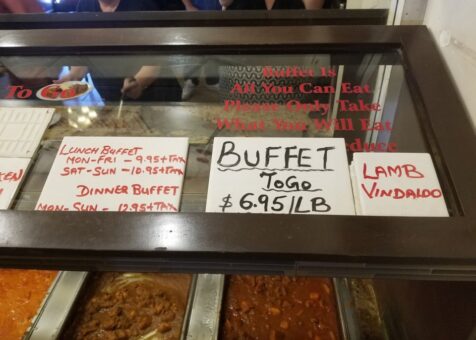 To Go
Buffet Is
All You Can Eat
Please Only Take
What You Will Eat
LUNCH BUFFET
MON-FRI - 9.95+TAX
SAT-SUN - 10.95+TAX
DINNER BUFFET
MON-SUN - 12.95+TAX
BUFFET
ToGo
$ 6.95/LB
LAMB
VINDALOO